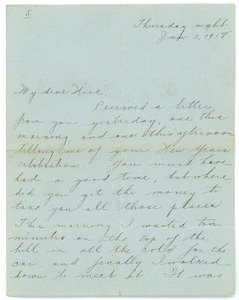 5
Thursday night
Jan 3, 1918
My dear
Received a letter
from you yesterday, one this
morning, and one this afternoon
telling me of your New Years
celebration. You must have
had a good time, but where
did you get the money to
take you all those places
This morning I waited ten
minutes on the top of the
hill in all the cold for the
car, and finally I walked
down to meet it. It was